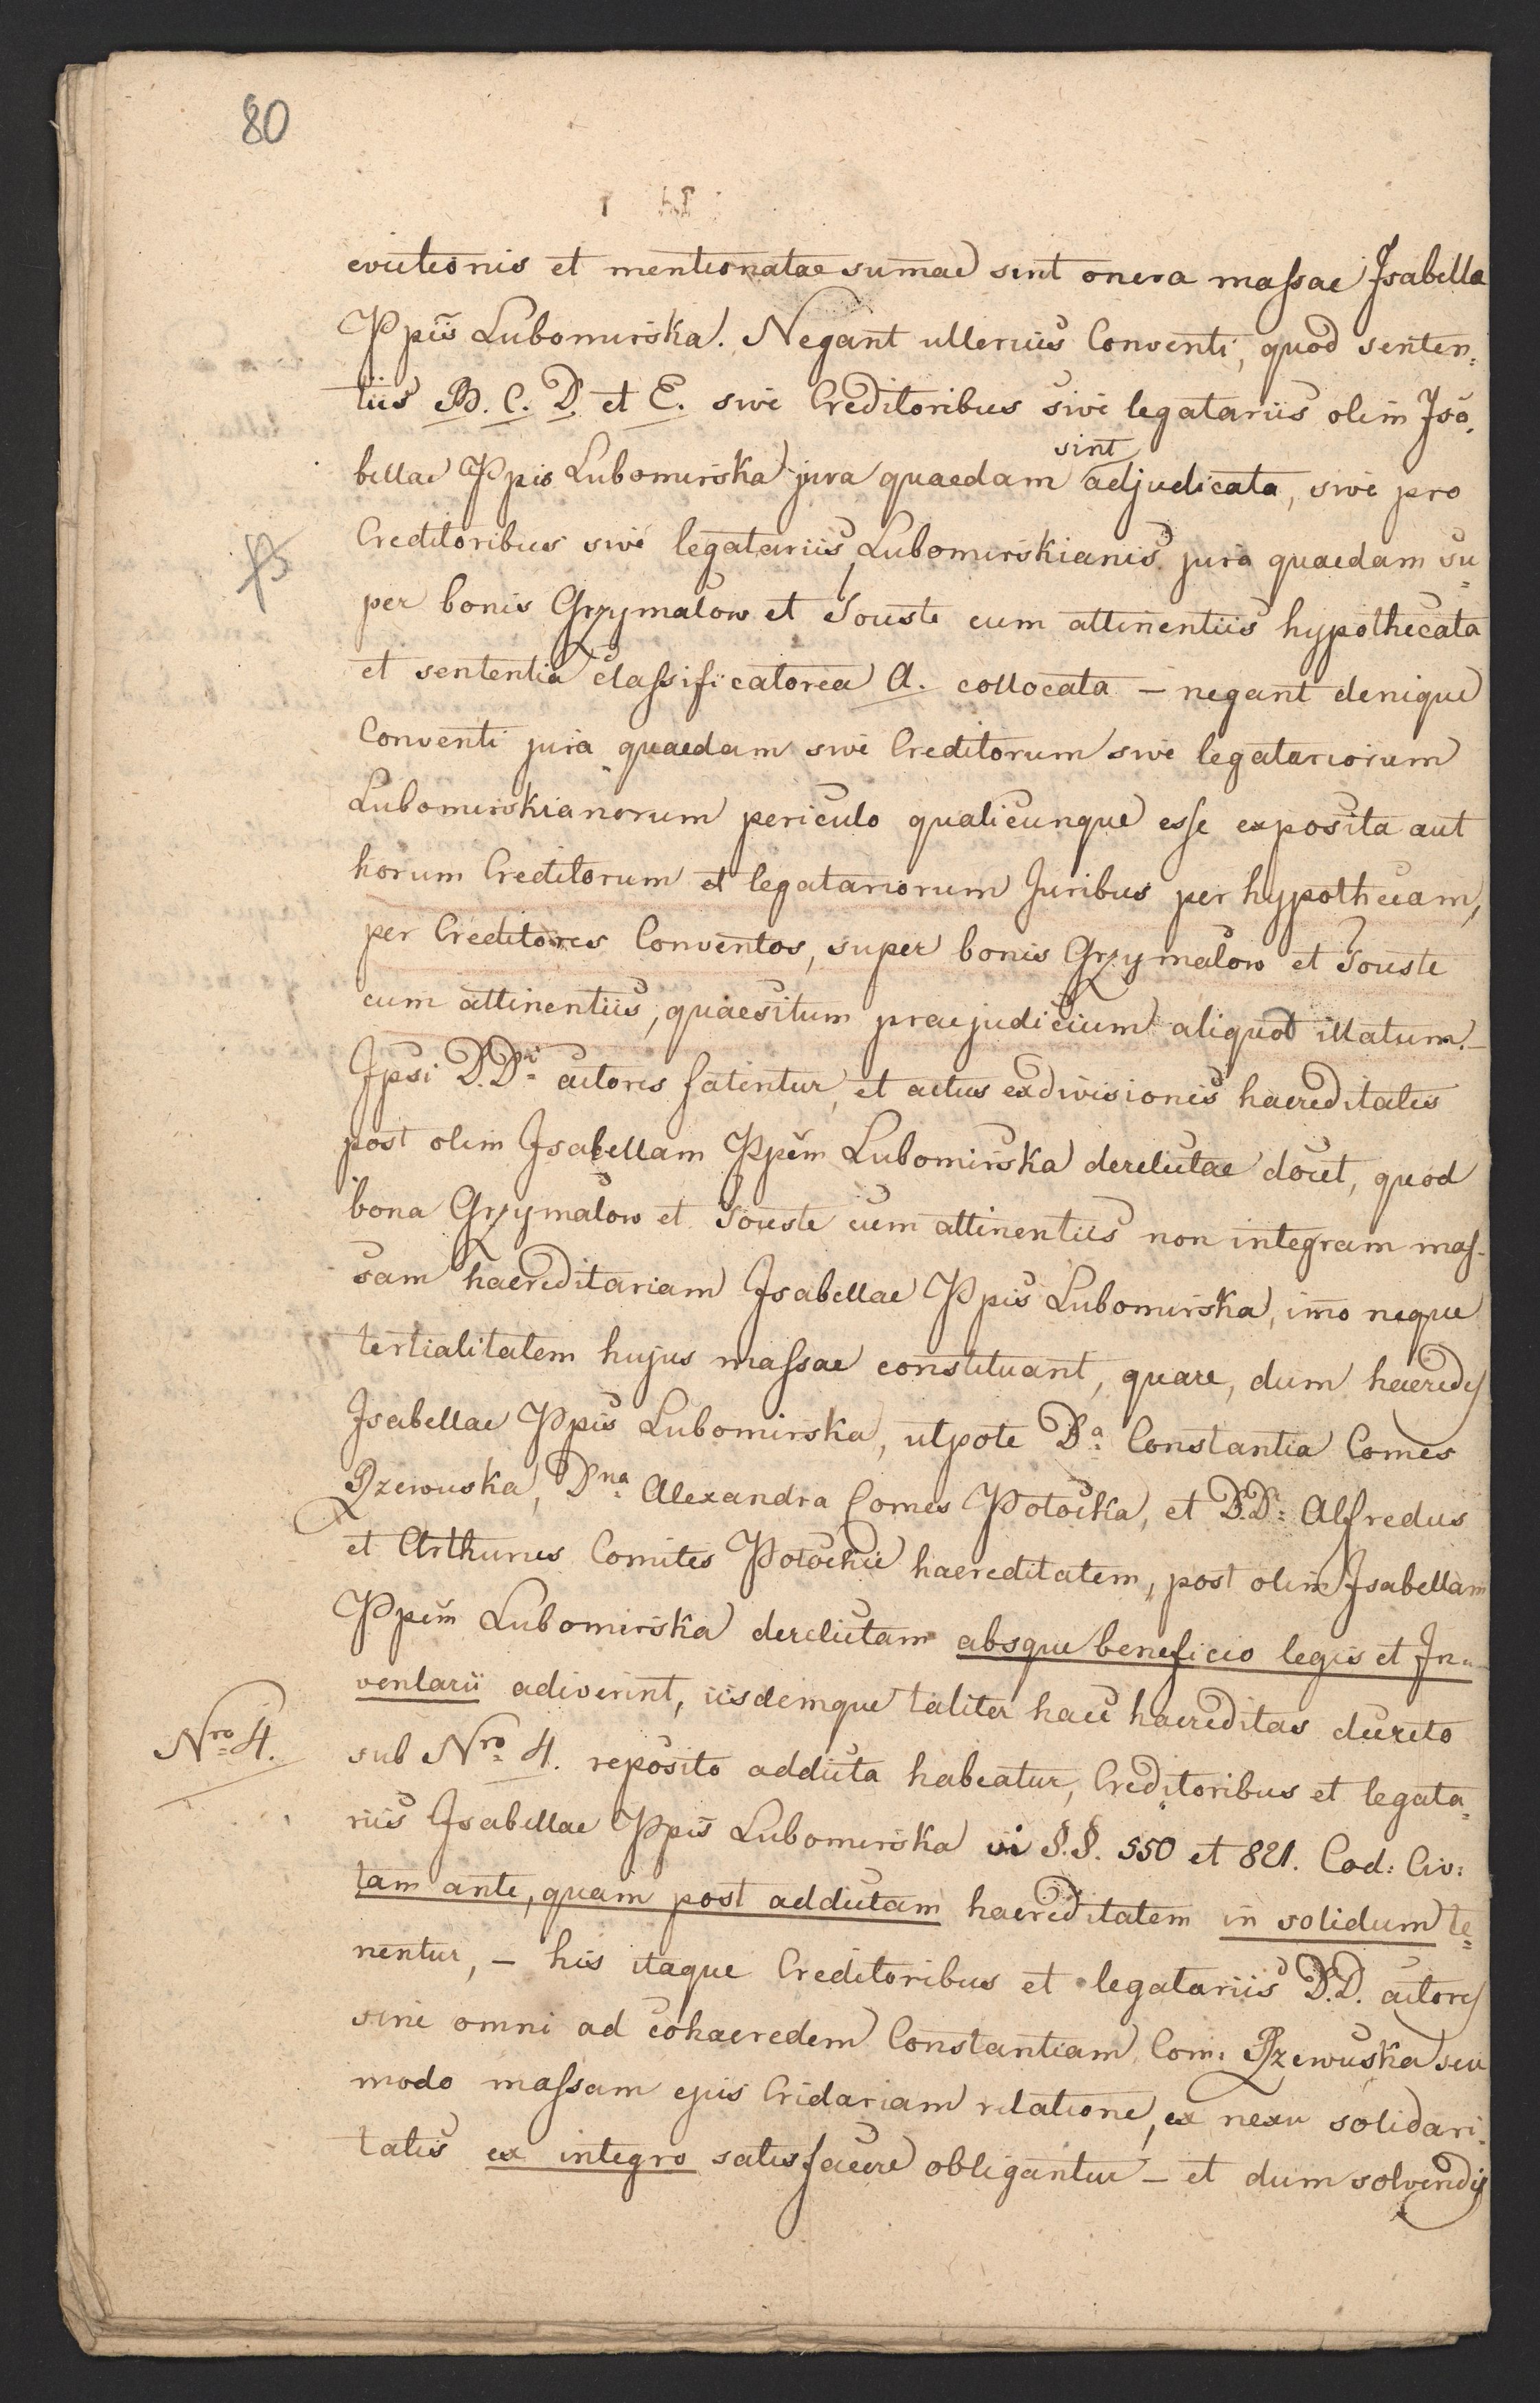 80
evictionis et mentionatae summae sint onera massae Isabella
Ppis Lubomirska. Negant ulterius Conventi, quod senten=
tiis B. C. D. et E. sive Creditoribus sive legatariis olim Isa=
bellae Ppis Lubomirska jura quaedam sint adjudicata, sive pro
Creditoribus sive legatariis Lubomirskianis jura quaedam su=
per bonis Grzymalow et Touste cum attinentiis hypothecata
et sententia classificatorea A. collocata – negant denique
Conventi jura quaedam sive Creditorum sive legatariorum
Lubomirskianorum periculo qualicunque esse exposita aut
horum Creditorum et legatariorum Juribus per hypothecam,
per Creditores Conventos, super bonis Grzymalow et Touste
cum attinentiis, quaesitum praejudicium aliquod illatum. –
Ipsi D.D. actores fatentur, et actus exdivisionis haereditatis
post olim Isabellam Ppem Lubomirska derelictae docet, quod
bona Grzymalow et Touste cum attinentiis non integram mas=
sam haereditariam Isabellae Ppis Lubomirska, imo neque
tertialitatem hujus massae constituant, quare, dum haeredes
Isabellae Ppis Lubomirska, utpote Da: Constantia Comes
Rzewuska, Dna: Alexandra Comes Potocka, et D.D: Alfredus
et Arthurus Comites Potockii haereditatem, post olim Isabellam
Ppem Lubomirska derelictam absque beneficio legis et In=
ventarii adiverint, iisdemque taliter haec haereditas decreto
Nro 4.
sub Nro 4. reposito addicta habeatur, Creditoribus et legata=
riis Isabellae Ppis Lubomirska vi §.§. 550 et 821. Cod: Civ:
tam ante, quam post addictam haereditatem in solidum te=
nentur, – his itaque Creditoribus et legatariis D.D. actores
sine omni ad cohaeredem Constantiam Com: Rzewuska seu
modo massam ejus Cridariam relatione, ex nexu solidari=
tatis ex integro satisfacere obligantur – et dum solvendis